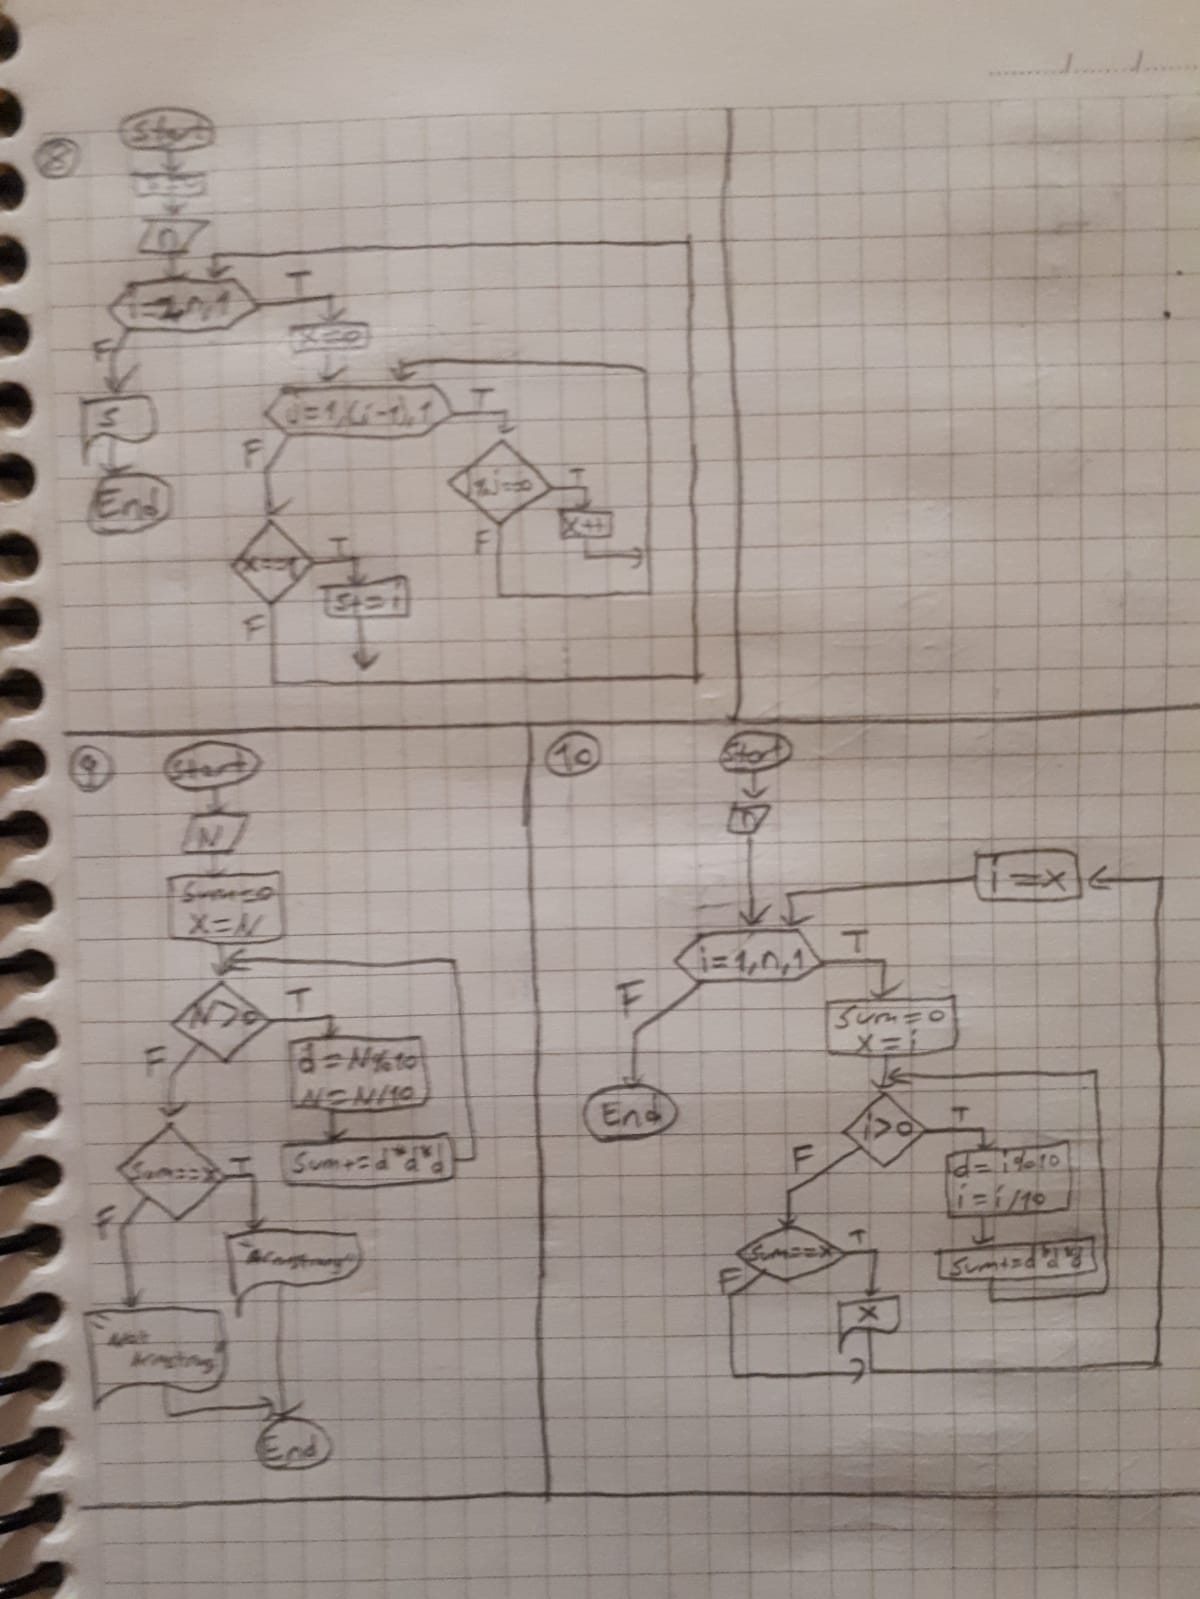 8
Start
n
T
x=0
F
j=1,(i-1),1
T
S
F
End
T
x++
F
x==1
T
s+=i
F
9
Start
N
Sum=0
x=N
N>0
T
F
d=N%10
N=N/10
Sum+=d*d*d
Sum==x
T
F
"Armstrong"
Armstrong"
End
10
Start
n
i=x
i=1,n,1
T
F
Sum=0
x=i
End
i>0
T
F
d=i%10
i=i/10
Sum+=d*d*d
Sum==x
T
F
x